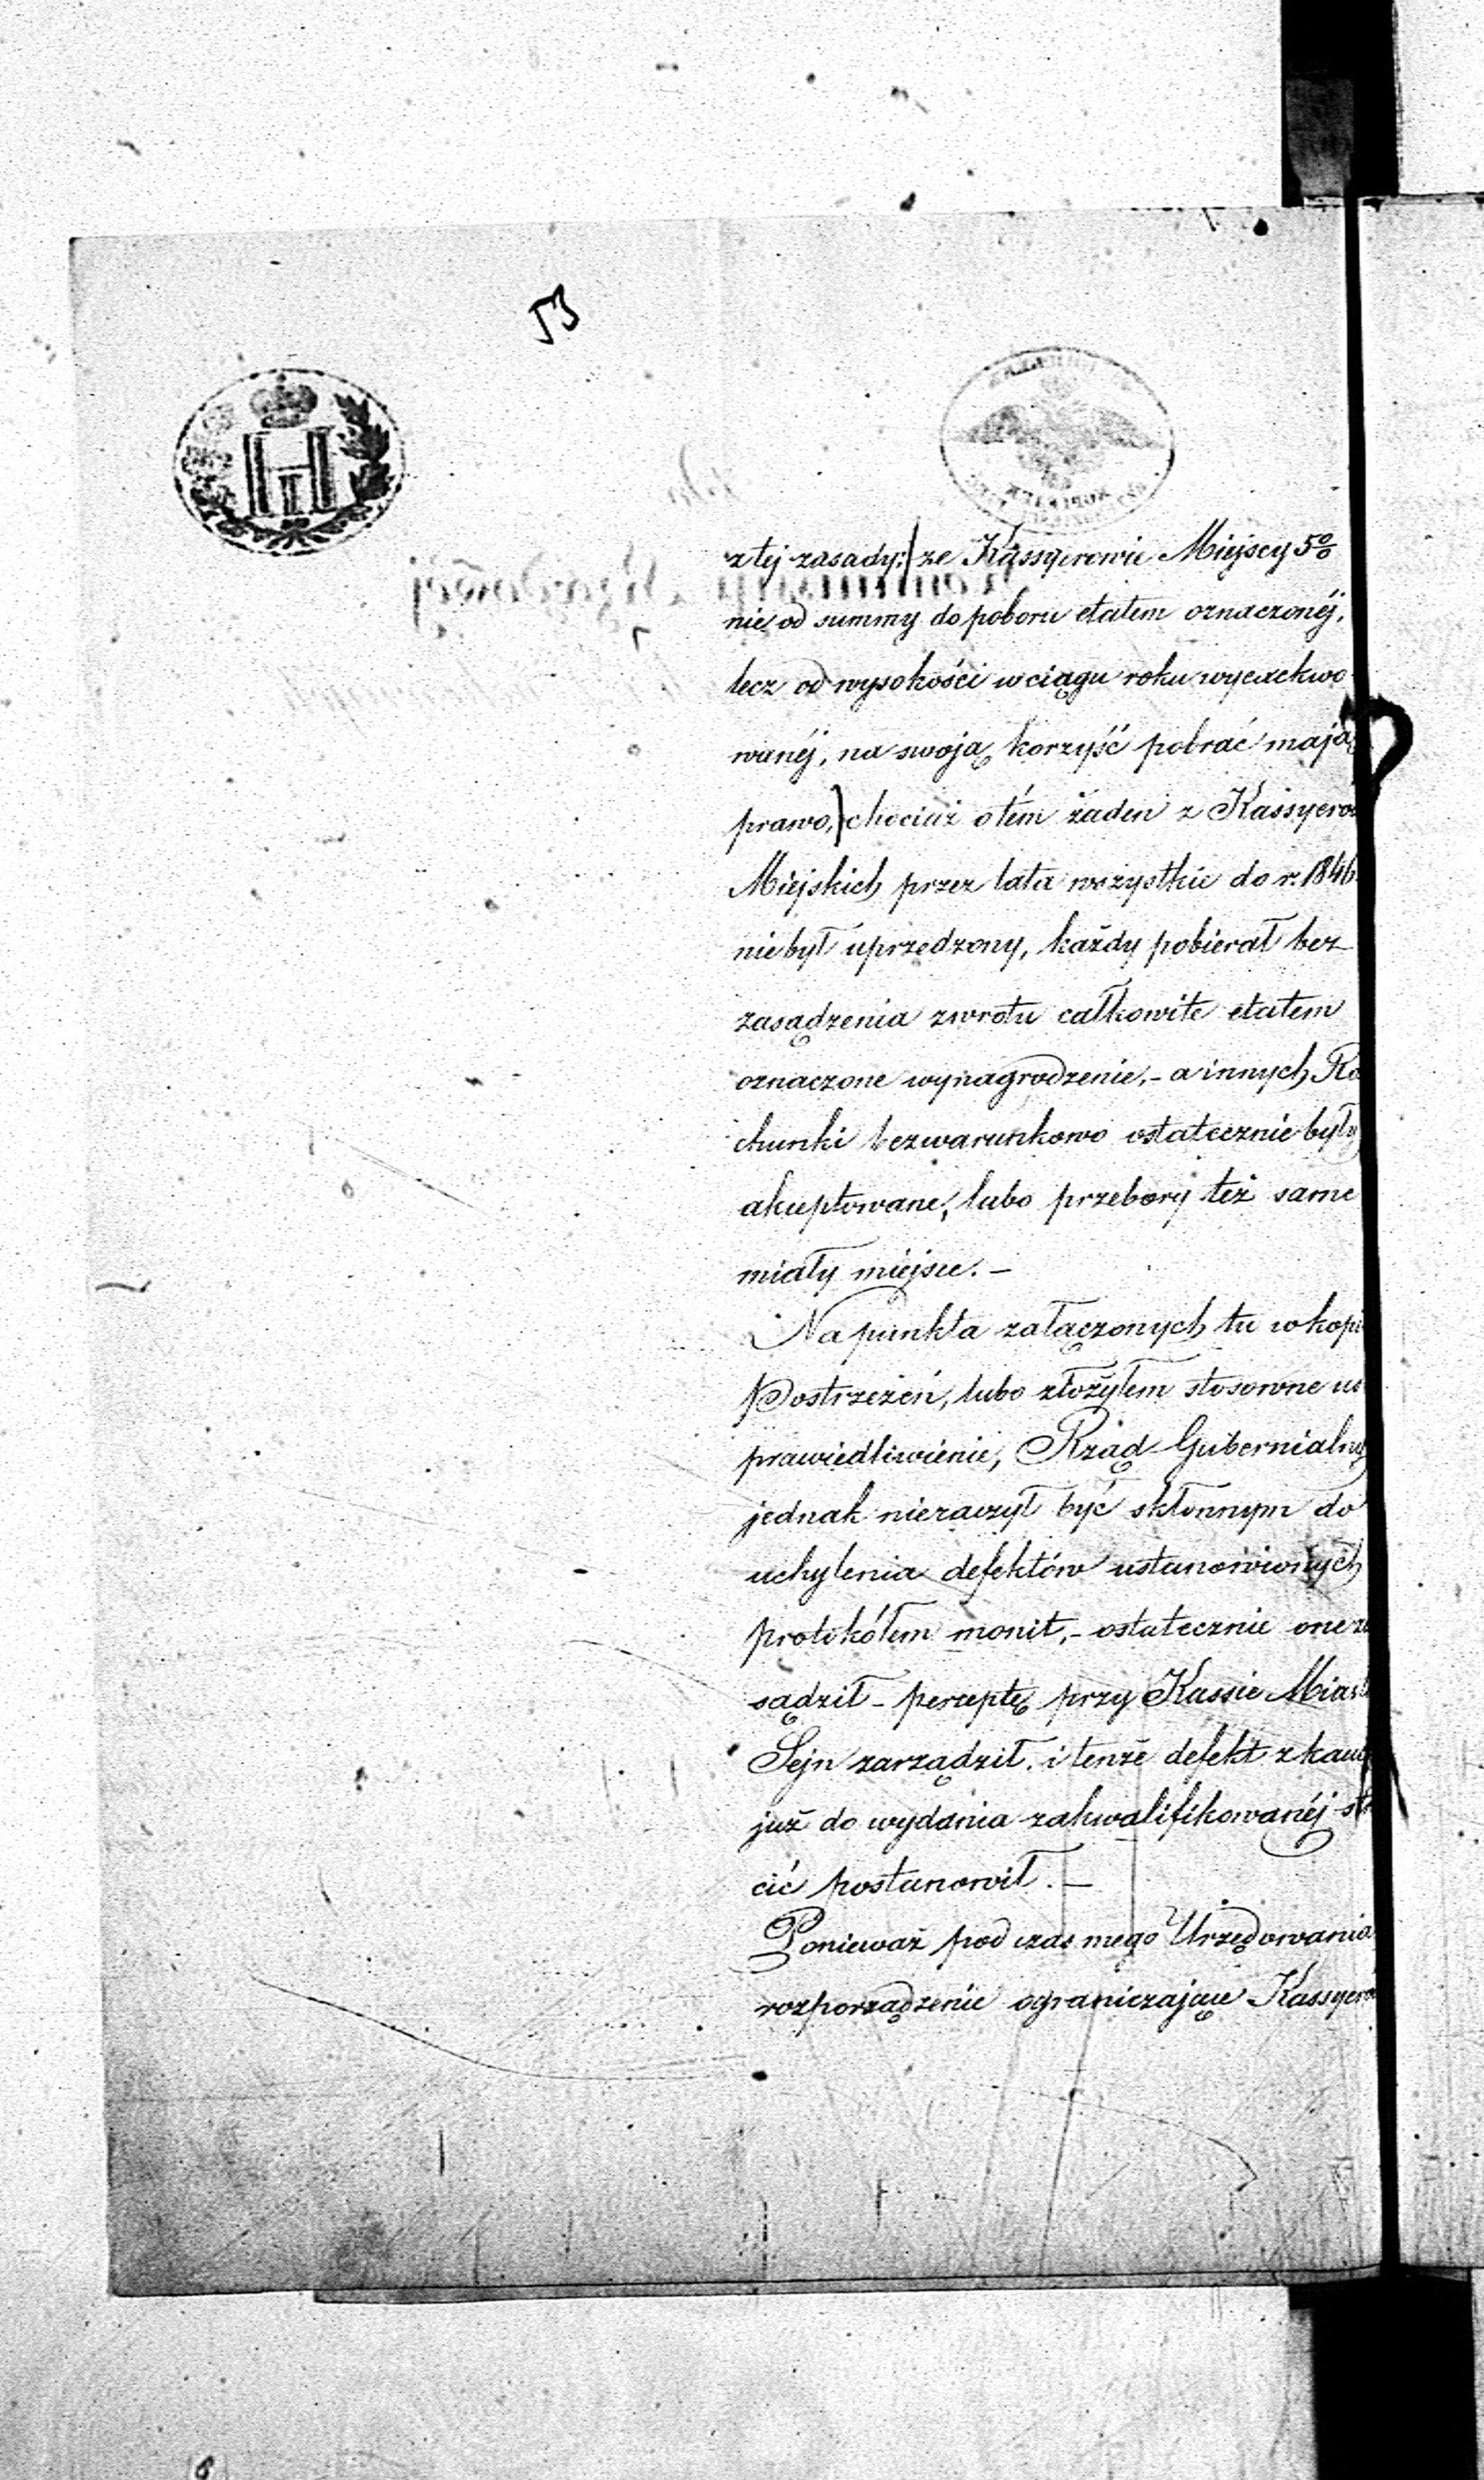 53
z tej zasady; że Kassyerowie Miejscy 5%
nie od summy do poboru etatem oznaczonéj,
lecz od wysokości w ciągu roku wyexekwo
wanéj, na swoją korzyść pobrać mają
prawo, chociaż o tém żaden z Kassyerów
Miejskich przez lata wszystkie do r. 1846
niebył uprzedzony, każdy pobierał bez
zasądzenia zwrotu całkowite etatem
oznaczone wynagrodzenie, - a innych Ra
chunki bezwarunkowo ostatecznie były
akceptowane, lubo przebory też same
miały miejsce. -
Na punkta załączonych tu w kopi
Postrzeżeń, lubo złożyłem stosowne us
prawiedliwienie, Rząd Gubernialny
jednak nieraczył być skłonnym do
uchylenia defektów ustanowionych
protokółem monit, - ostatecznie one za
sądził - perceptę przy Kassie Miasta
Sejn zarządził, i tenże defekt z kau
już do wydania zakwalifikowanéj str
cić postanowił. -
Ponieważ podczas mego Urzędowania
rozporządzenie ograniczające Kassyeró